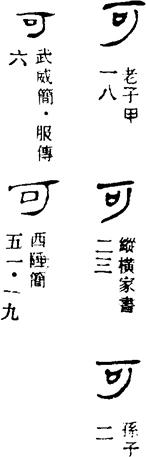 可
老子甲
一八
可
縱橫家書
二三
可
孫子
二
可
武威簡·服傳
六
可
西陲簡
五一·一九